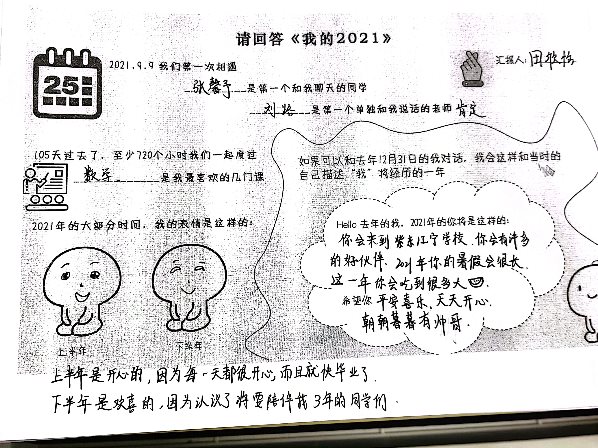 请回答《我的2021》
2021.9.9 我们第一次相遇
汇报人:田
25
张馨予 是第一个和我聊天的同学
刘 是第一个单独和我说话的老师 肯定
105天过去了,至少720个小时我们一起度过
数学 是我最喜欢的几门课
如果可以和去年12月31日的我对话,我会这样和当时的
自己描述“我”将经历的一年
2021年的大部分时间,我的表情是这样的:
Hello 去年的我,2021年的你将是这样的:
你会来到 江宁学校,你会有许多
的好伙伴,2021年你的暑假会很长
这一年你会吃到很多人
希望你 平安喜乐,天天开心
朝朝暮暮有帅哥.
上半年
下半年
上半年是开心的,因为每一天都很开心,而且就快毕业了
下半年是欢喜的,因为认识了将要陪伴我3年的同学们.